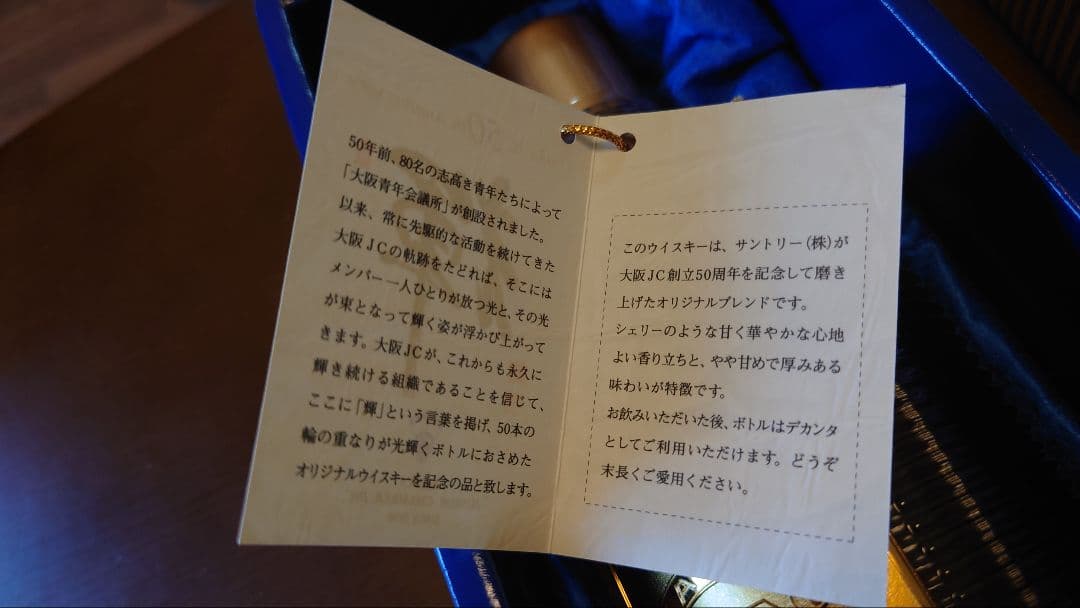 50年前、80名の志高き青年たちによって
「大阪青年会議所」が創設されました。
以来、常に先駆的な活動を続けてきた
大阪JCの軌跡をたどれば、そこには
メンバー一人ひとりが放つ光と、その光
が束となって輝く姿が浮かび上がって
きます。大阪JCが、これからも永久に
輝き続ける組織であることを信じて、
ここに「輝」という言葉を掲げ、50本の
輪の重なりが光輝くボトルにおさめた
オリジナルウイスキーを記念の品と致します。
このウイスキーは、サントリー(株)が
大阪JC創立50周年を記念して磨き
上げたオリジナルブレンドです。
シェリーのような甘く華やかな心地
よい香り立ちと、やや甘めで厚みある
味わいが特徴です。
お飲みいただいた後、ボトルはデカンタ
としてご利用いただけます。どうぞ
末長くご愛用ください。